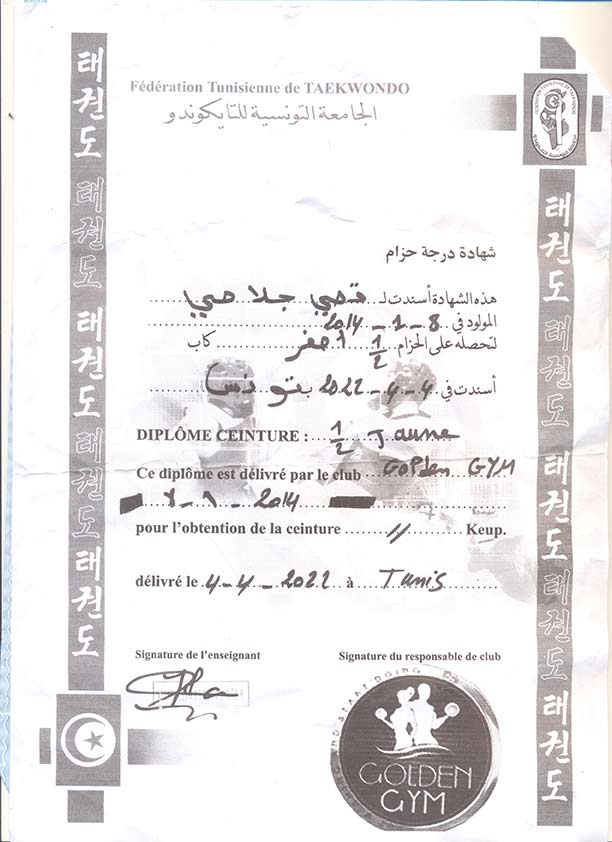 Fédération Tunisienne de TAEKWONDO
الجامعة التونسية للتايكوندو
태권도 태권도 태권도 태권도 태권도
태권도 태권도 태권도 태권도 태권도
شهادة درجة حزام
هذه الشهادة أسندت لـ قصي جلاصي
المولود في 8 - 1 - 2014
لتحصله على الحزام 1/2 أصفر كاب
أسندت في 4 - 4 - 2022 بتونس
DIPLÔME CEINTURE : 1/2 Jaune
Ce diplôme est délivré par le club Golden GYM
1 - 2014
pour l'obtention de la ceinture 11 Keup.
délivré le 4-4-2022 à Tunis
Signature de l'enseignant
Signature du responsable de club
GOLDEN
GYM